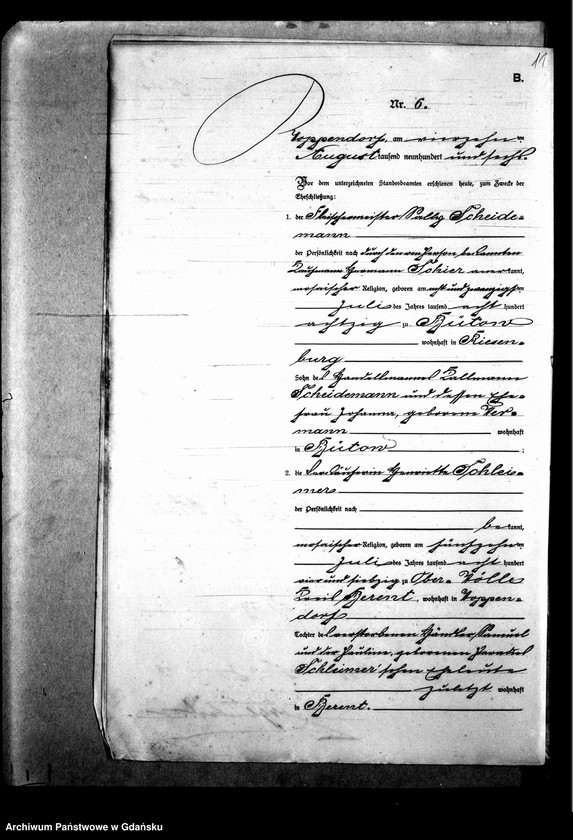 11
B.
Nr. 6.
Poppendorf, am vierzehn ten
August tausend neunhundert und sechs.
Vor dem unterzeichneten Standesbeamten erschienen heute, zum Zwecke der
Eheschließung:
1. der Fleischermeister Scheide-
mann
der Persönlichkeit nach durch den von Person bekannten
Kaufmann Hermann Schier anerkannt,
mosaischer Religion, geboren am acht und zwanzigsten
Juli des Jahres tausend acht hundert
achtzig zu Bütow
wohnhaft in Riesen-
burg
Sohn des Handelsmannes Kallmann
Scheidemann und dessen Ehe-
frau Johanna, geborene Ber-
mann wohnhaft
in Bütow ;
2. die Henriette Schlei-
mer
der Persönlichkeit nach
bekannt,
mosaischer Religion, geboren am fünfzehn ten
Juli des Jahres tausend acht hundert
vier und siebzig zu Ober-
Kreis Berent, wohnhaft in Poppen-
dorf
Tochter des verstorbenen Händler Samuel
und der Pauline, geborenen
Schleimer'schen Eheleute
zuletzt wohnhaft
in Berent.
Archiwum Państwowe w Gdańsku